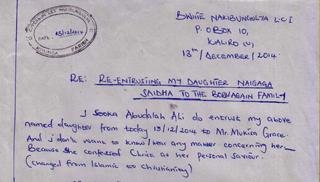 BWIITE NAKIBUNGULYA L.C I
P.O BOX 10,
KALIRO (U),
13th/December/2014
RE: RE-ENTRUSTING MY DAUGHTER NAIGAGA
SAIDHA TO THE FAMILY
I Abudalah Ali do entrust my above
named daughter from today 13/12/2014 to Mr. Mukisa Grace.
And i don't want to know/hea any matter concerning her
Because she confessed Christ as her personal saviour.
(changed from Islamic to christianing)